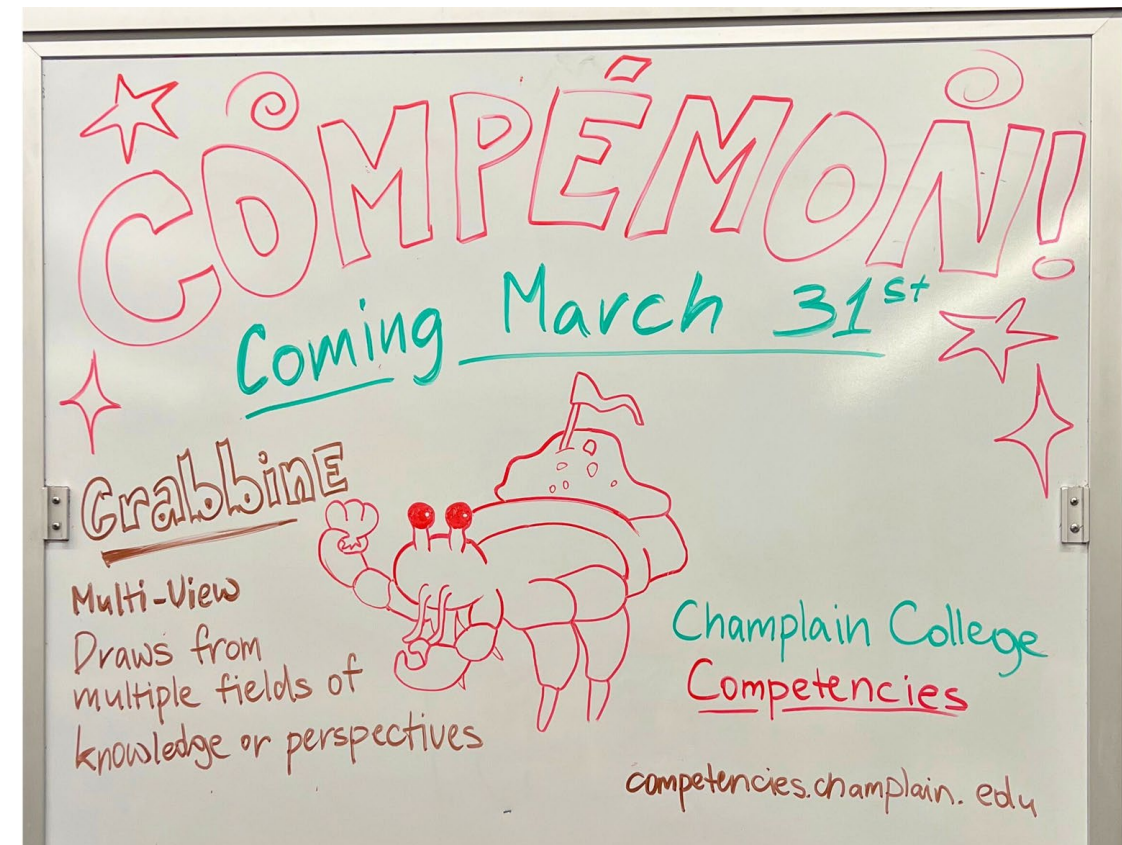 COMPÉMON!
Coming March 31st
CrabbinE
Multi-View
Draws from
multiple fields of
knowledge or perspectives
Champlain College
Competencies
competencies.champlain.edu